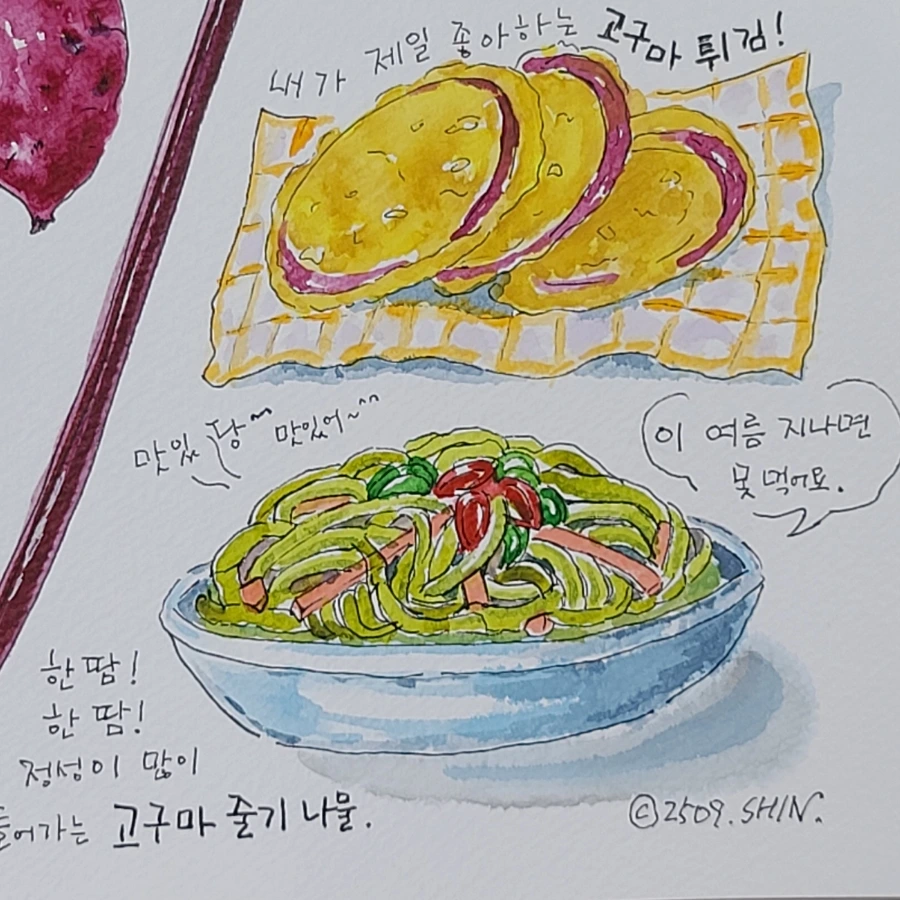 내가 제일 좋아하는 고구마 튀김!
맛있당~ 맛있어~^^
이 여름 지나면
못 먹어요.
한 땀!
한 땀!
정성이 많이
들어가는 고구마 줄기 나물.
©2509. SHIN.